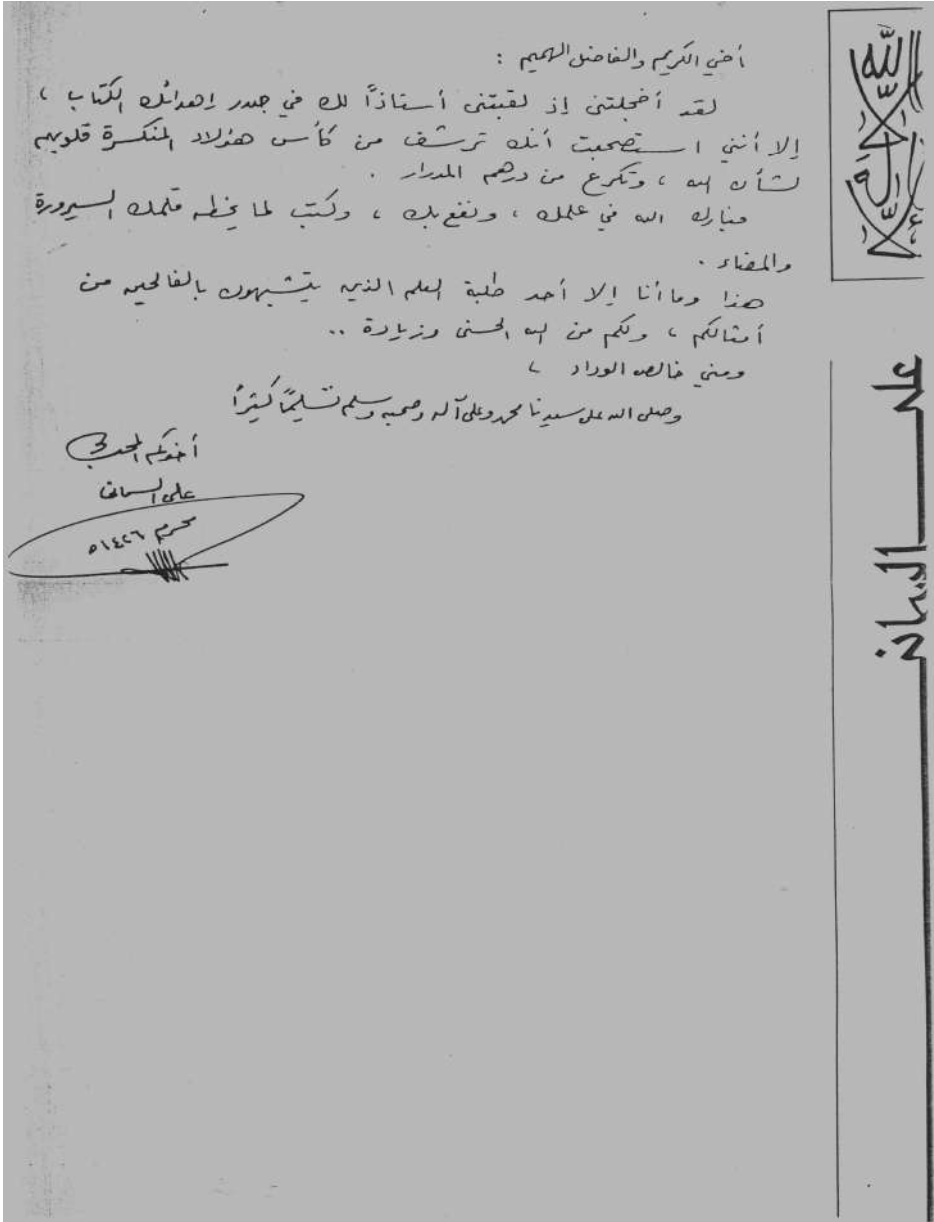 أخي الكريم والفاضل الهميم :
لقد أخجلتني إذ لقبتني أستاذاً لك في صدر إهدائك الكتاب ،
إلا أنني استصحبت أنك ترشف من كأس هؤلاء المنكسرة قلوبهم
لشأن الله ، وتكرع من درهم المدرار .
فبارك الله في علمك ، ونفع بك ، وكتب لما يخطه قلمك السيرورة
والمضاء .
هذا وما أنا إلا أحد طلبة العلم الذين يتشبهون بالفالحين من
أمثالكم ، ولكم من الله الحسنى وزيادة ..
ومني خالص الوداد ،
وصلى الله على سيدنا محمد وعلى آله وصحبه وسلم تسليمًا كثيرًا
أخوكم المحب
علي السماني
محرم ١٤٢٦ه
علي السماني